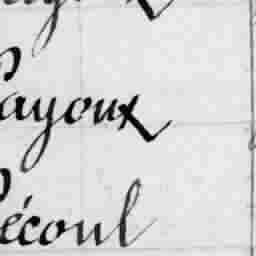 ayoux
écoul